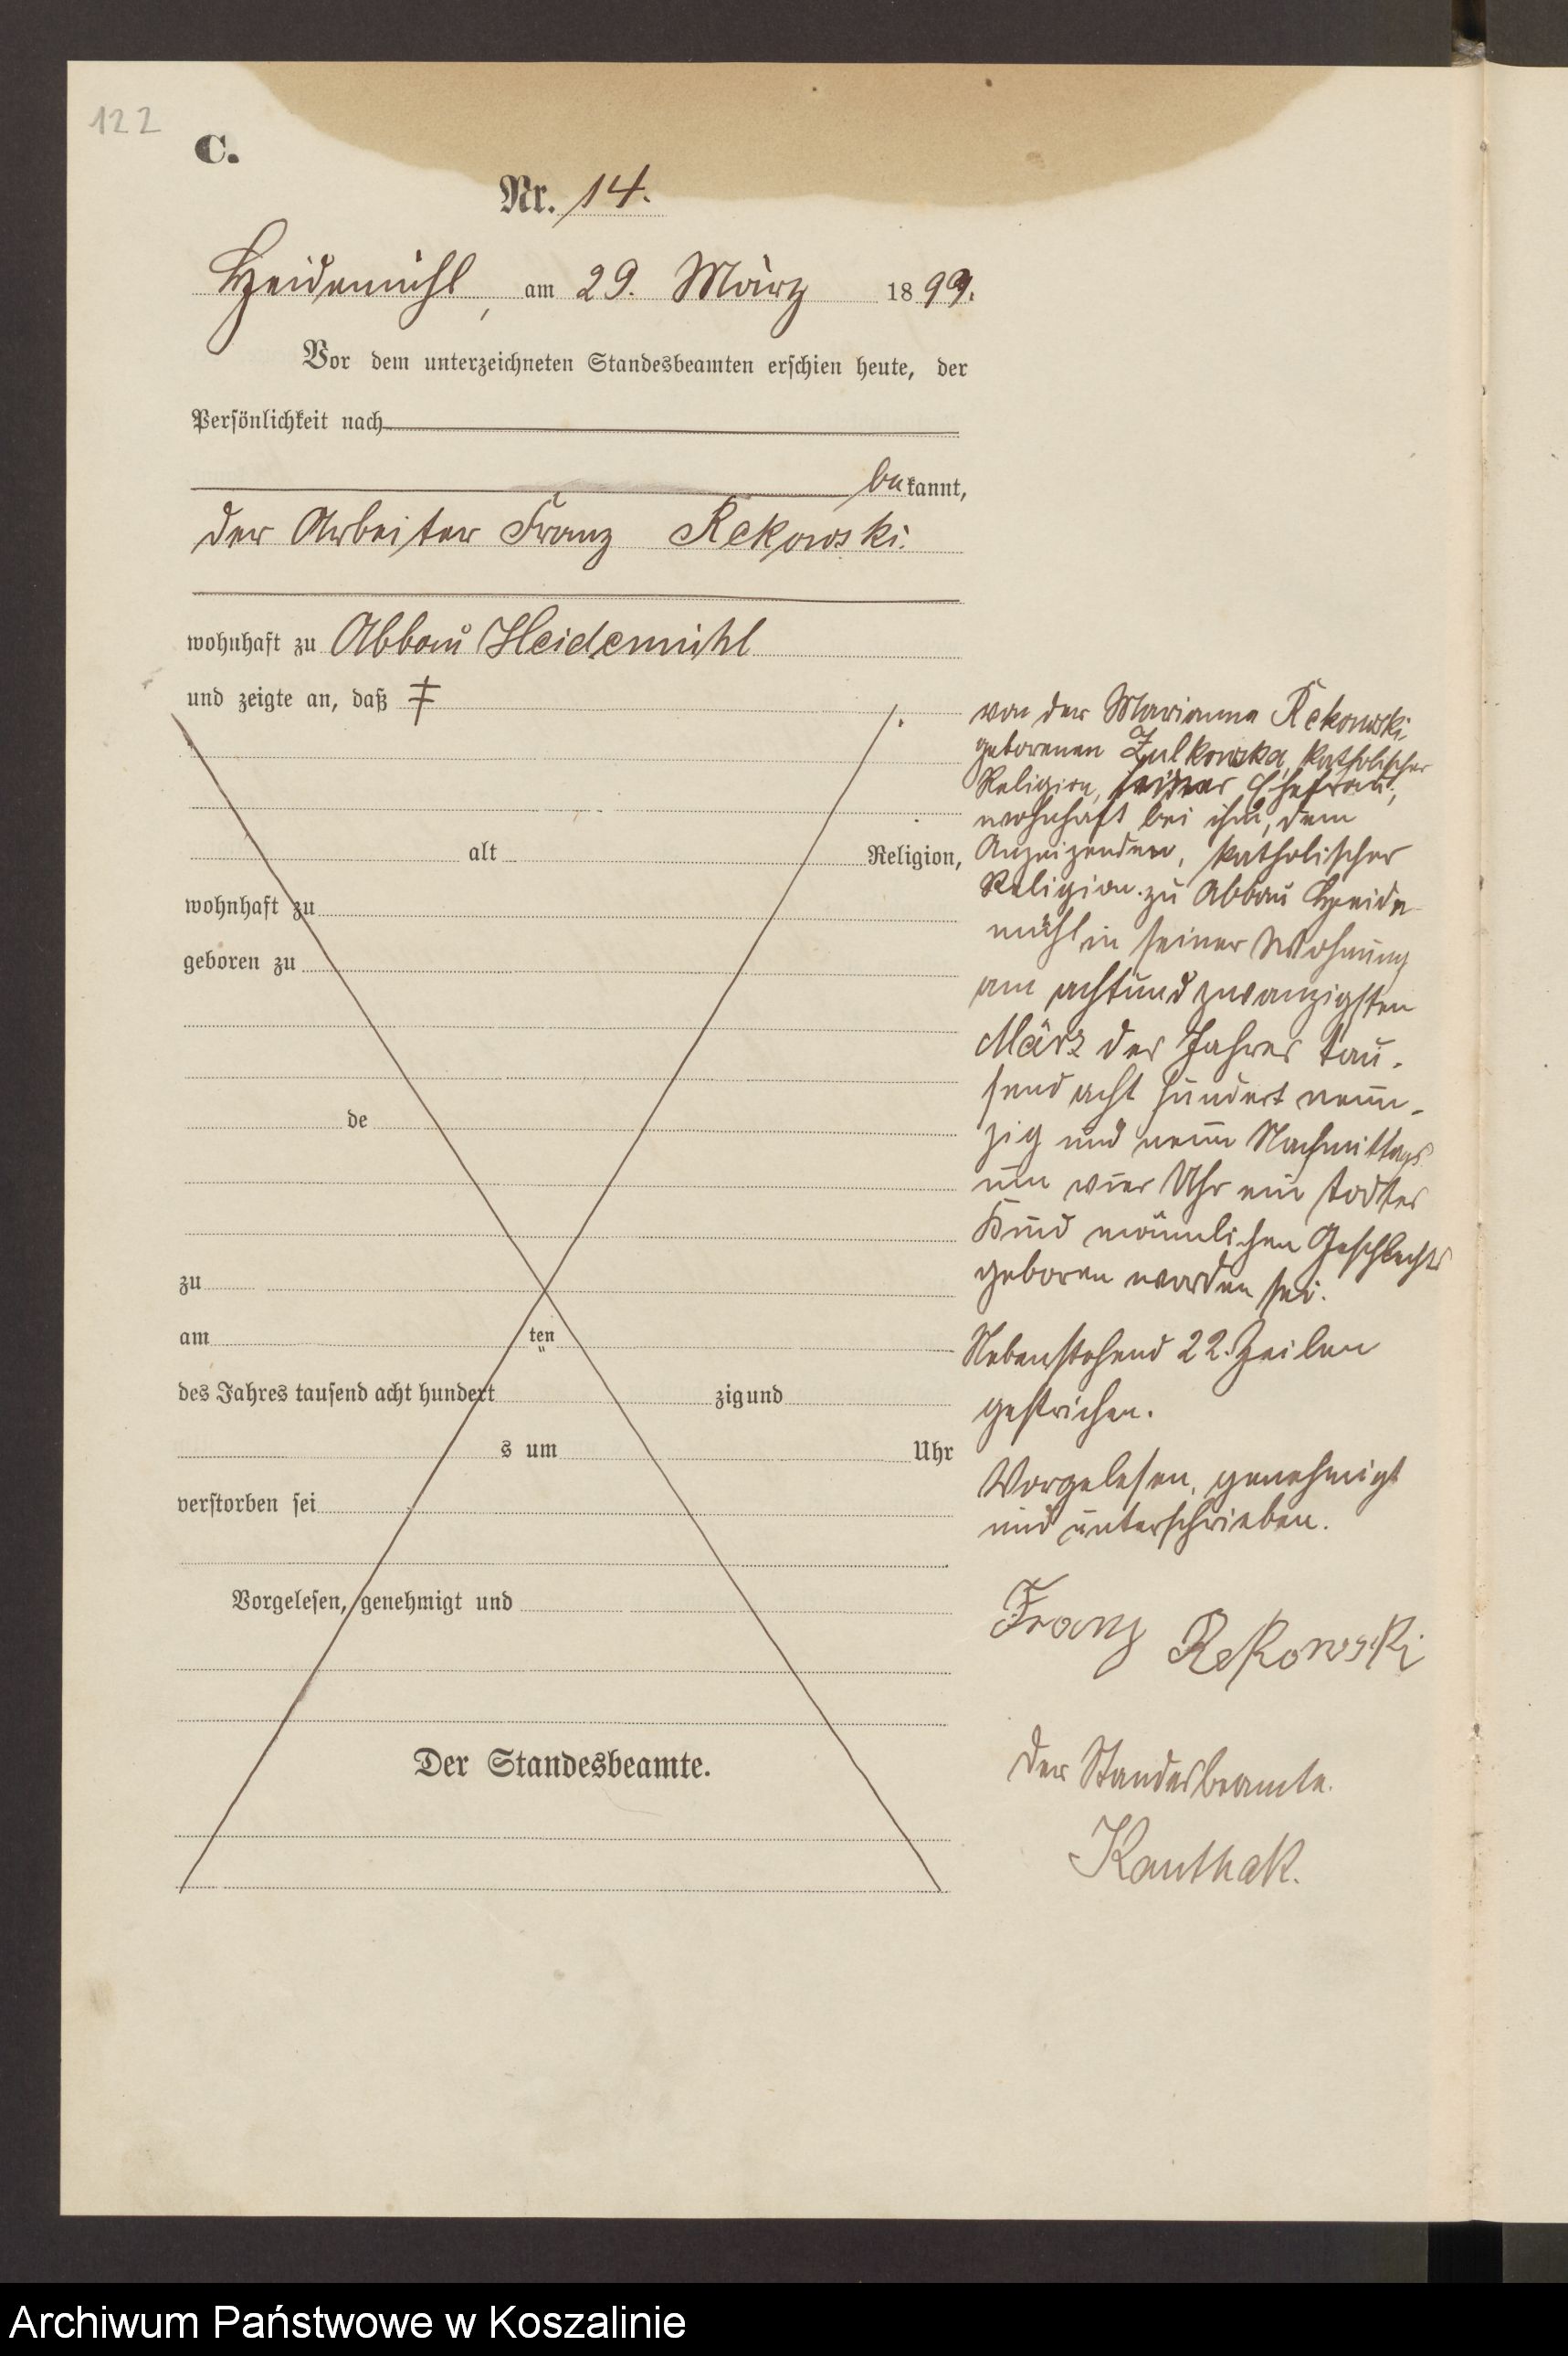 122
C.
Nr. 14.
Heidemühl, am 29. März 1899.
Vor dem unterzeichneten Standesbeamten erschien heute, der
Persönlichkeit nach
bekannt,
der Arbeiter Franz Rekowski.
wohnhaft zu Abbau Heidemühl
und zeigte an, daß ‡
alt Religion,
wohnhaft zu
geboren zu
de
zu
am ten
des Jahres tausend acht hundert zig und
s um Uhr
verstorben sei
Vorgelesen, genehmigt und
Der Standesbeamte.
von der Marianna Rekowski,
geborenen Zulkowska, katholischer
Religion, seiner Ehefrau,
wohnhaft bei ihm, dem
Anzeigenden, katholischer
Religion zu Abbau Heide
mühl in seiner Wohnung
am achtundzwanzigsten
März des Jahres tau-
send acht hundert neun-
zig und neun Nachmittags
um vier Uhr ein todtes
Kind männlichen Geschlechts
geboren worden sei.
Nebenstehend 22 Zeilen
gestrichen.
Vorgelesen, genehmigt
und unterschrieben.
Franz Rekowski
Der Standesbeamte.
Kanthak.
Archiwum Państwowe w Koszalinie